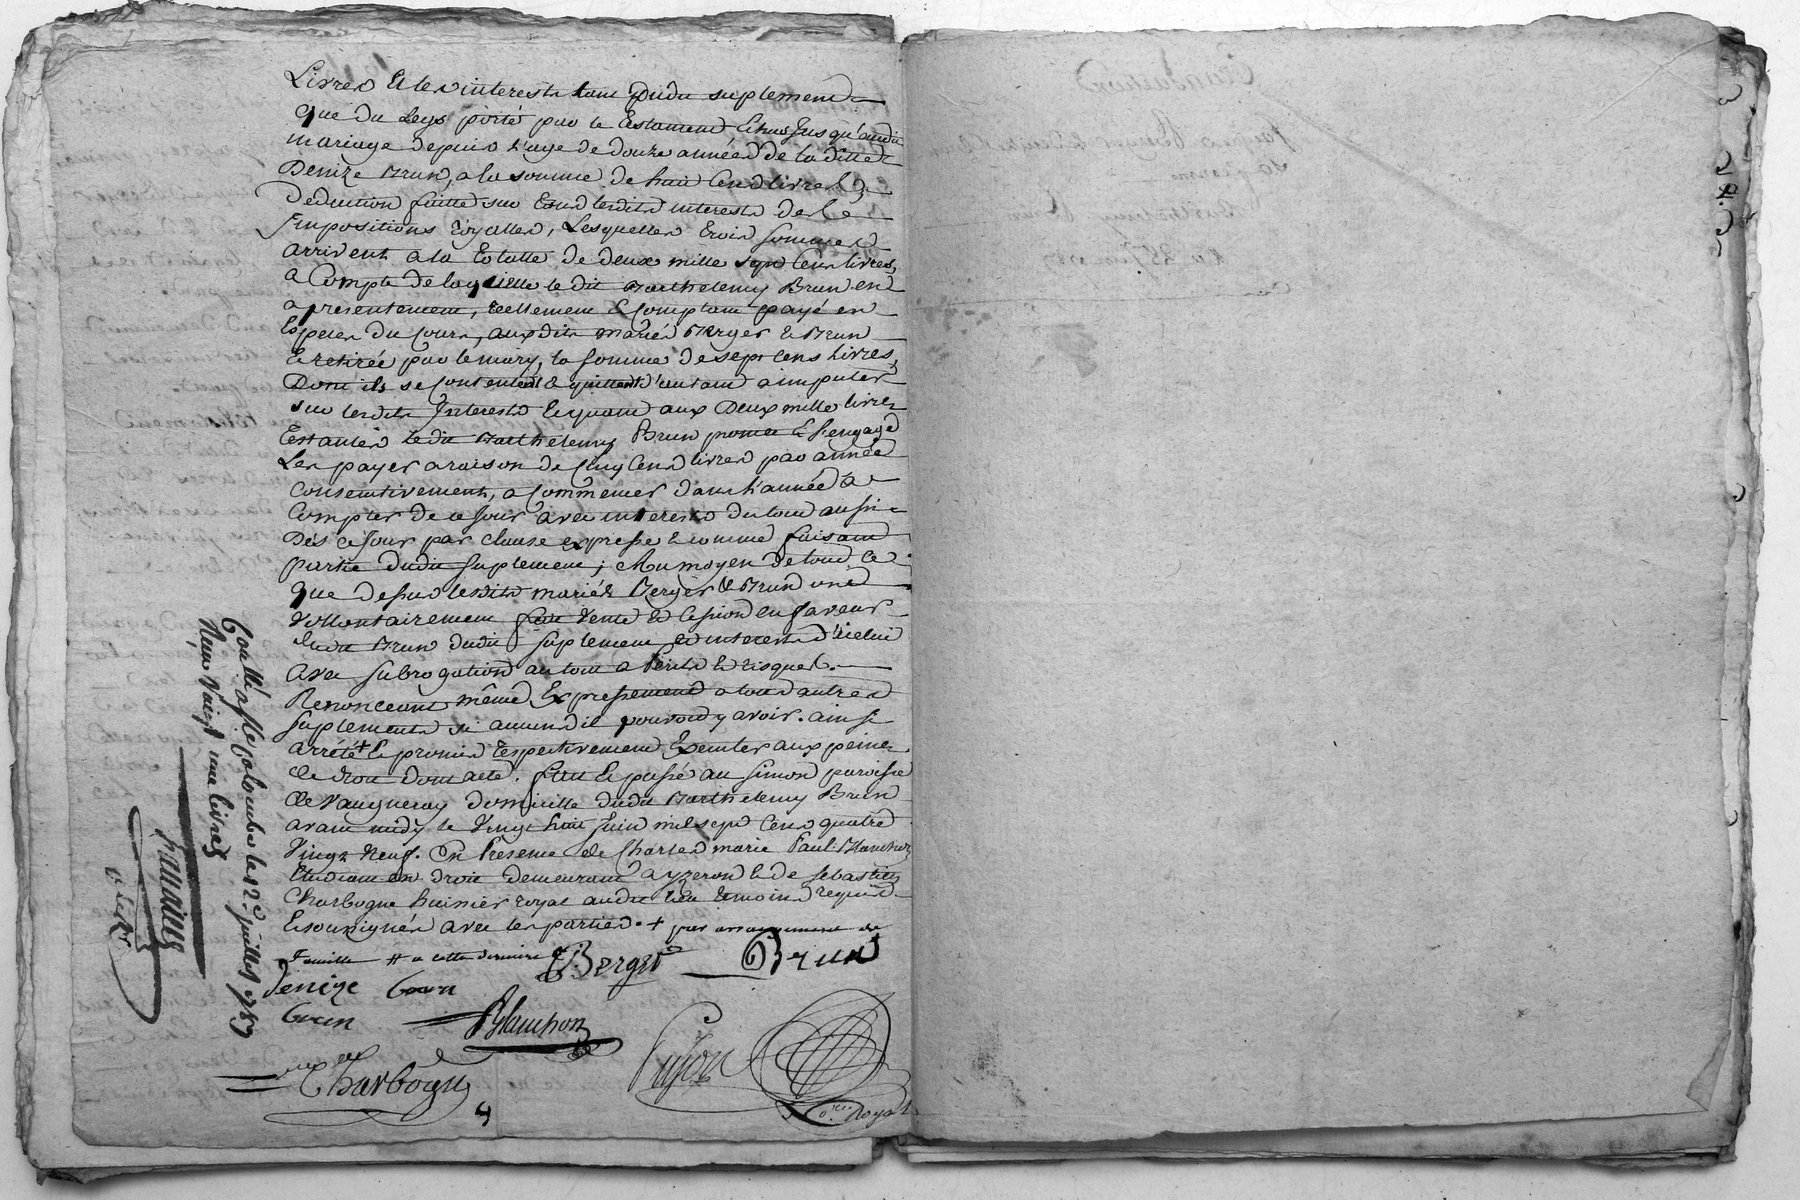 Livres Et les interests tant dudit suplement
que du Legs porté par le testament Echus Jusqu'audit
mariage depuis l'age de douze années de la ditte
Denize Brun, a la somme de huit Cent livres,
Deduction faitte sur tous lesdits interests des
Impositions Royalles, Lesquelles trois sommes
arrivent a la totalle de deux mille sept Cens livres,
a Compte de laquelle le dit Barthelemy Brun en
a presentement, reellement & comptant payé en
Especes du Cours, auxdits mariés Berger & Brun
& retirée par le mary, la somme de sept cens livres,
Dont ils se contentent & quittent d'autant a imputer
sur lesdits Interests & quant aux Deux mille livres
restantes ledit Barthelemy Brun promet & s'engage
Les payer a raison de cinq Cens livres par année
Consecutivement, a Commencer dans l'année a
Compter de ce jour avec interests du tout aussi
Dés ce Jour par clause expresse & comme faisant
partie dudit suplement; & au moyen de tout ce
que dessus lesdits mariés Berger & Brun ont
vollontairement fait Vente & cession en faveur
dudit Brun dudit suplement & interests d'icelui
avec subrogation au tout a Perils & risques.
Renonceant même Expressement a tous autres
suplements si aucun il pouvoit y avoir. ainsi
arrêté + & promis respectivement Executer aux peines
de droit dont acte. fait & passé au Simon paroisse
de Vaugneray domicille dudit Barthelemy Brun
avant midy le Vingt huit Juin mil sept Cens quatre
Vingt Neuf. En Presence de Charles marie Paul Blanchon
Etudiant en droit demeurant a yzeron & de Sebastien
Charbogne huissier royal audit lieu temoins requis
& soussignés avec les parties. + par arrangement de
famille # a cette derniere
Berger Brun
Denize Brun
Brun
Blanchon
Charbogne
Nore. Royal
4
Conllé a Ste Colombe le 12e. juillet 1789
Reçu Vingt une livres